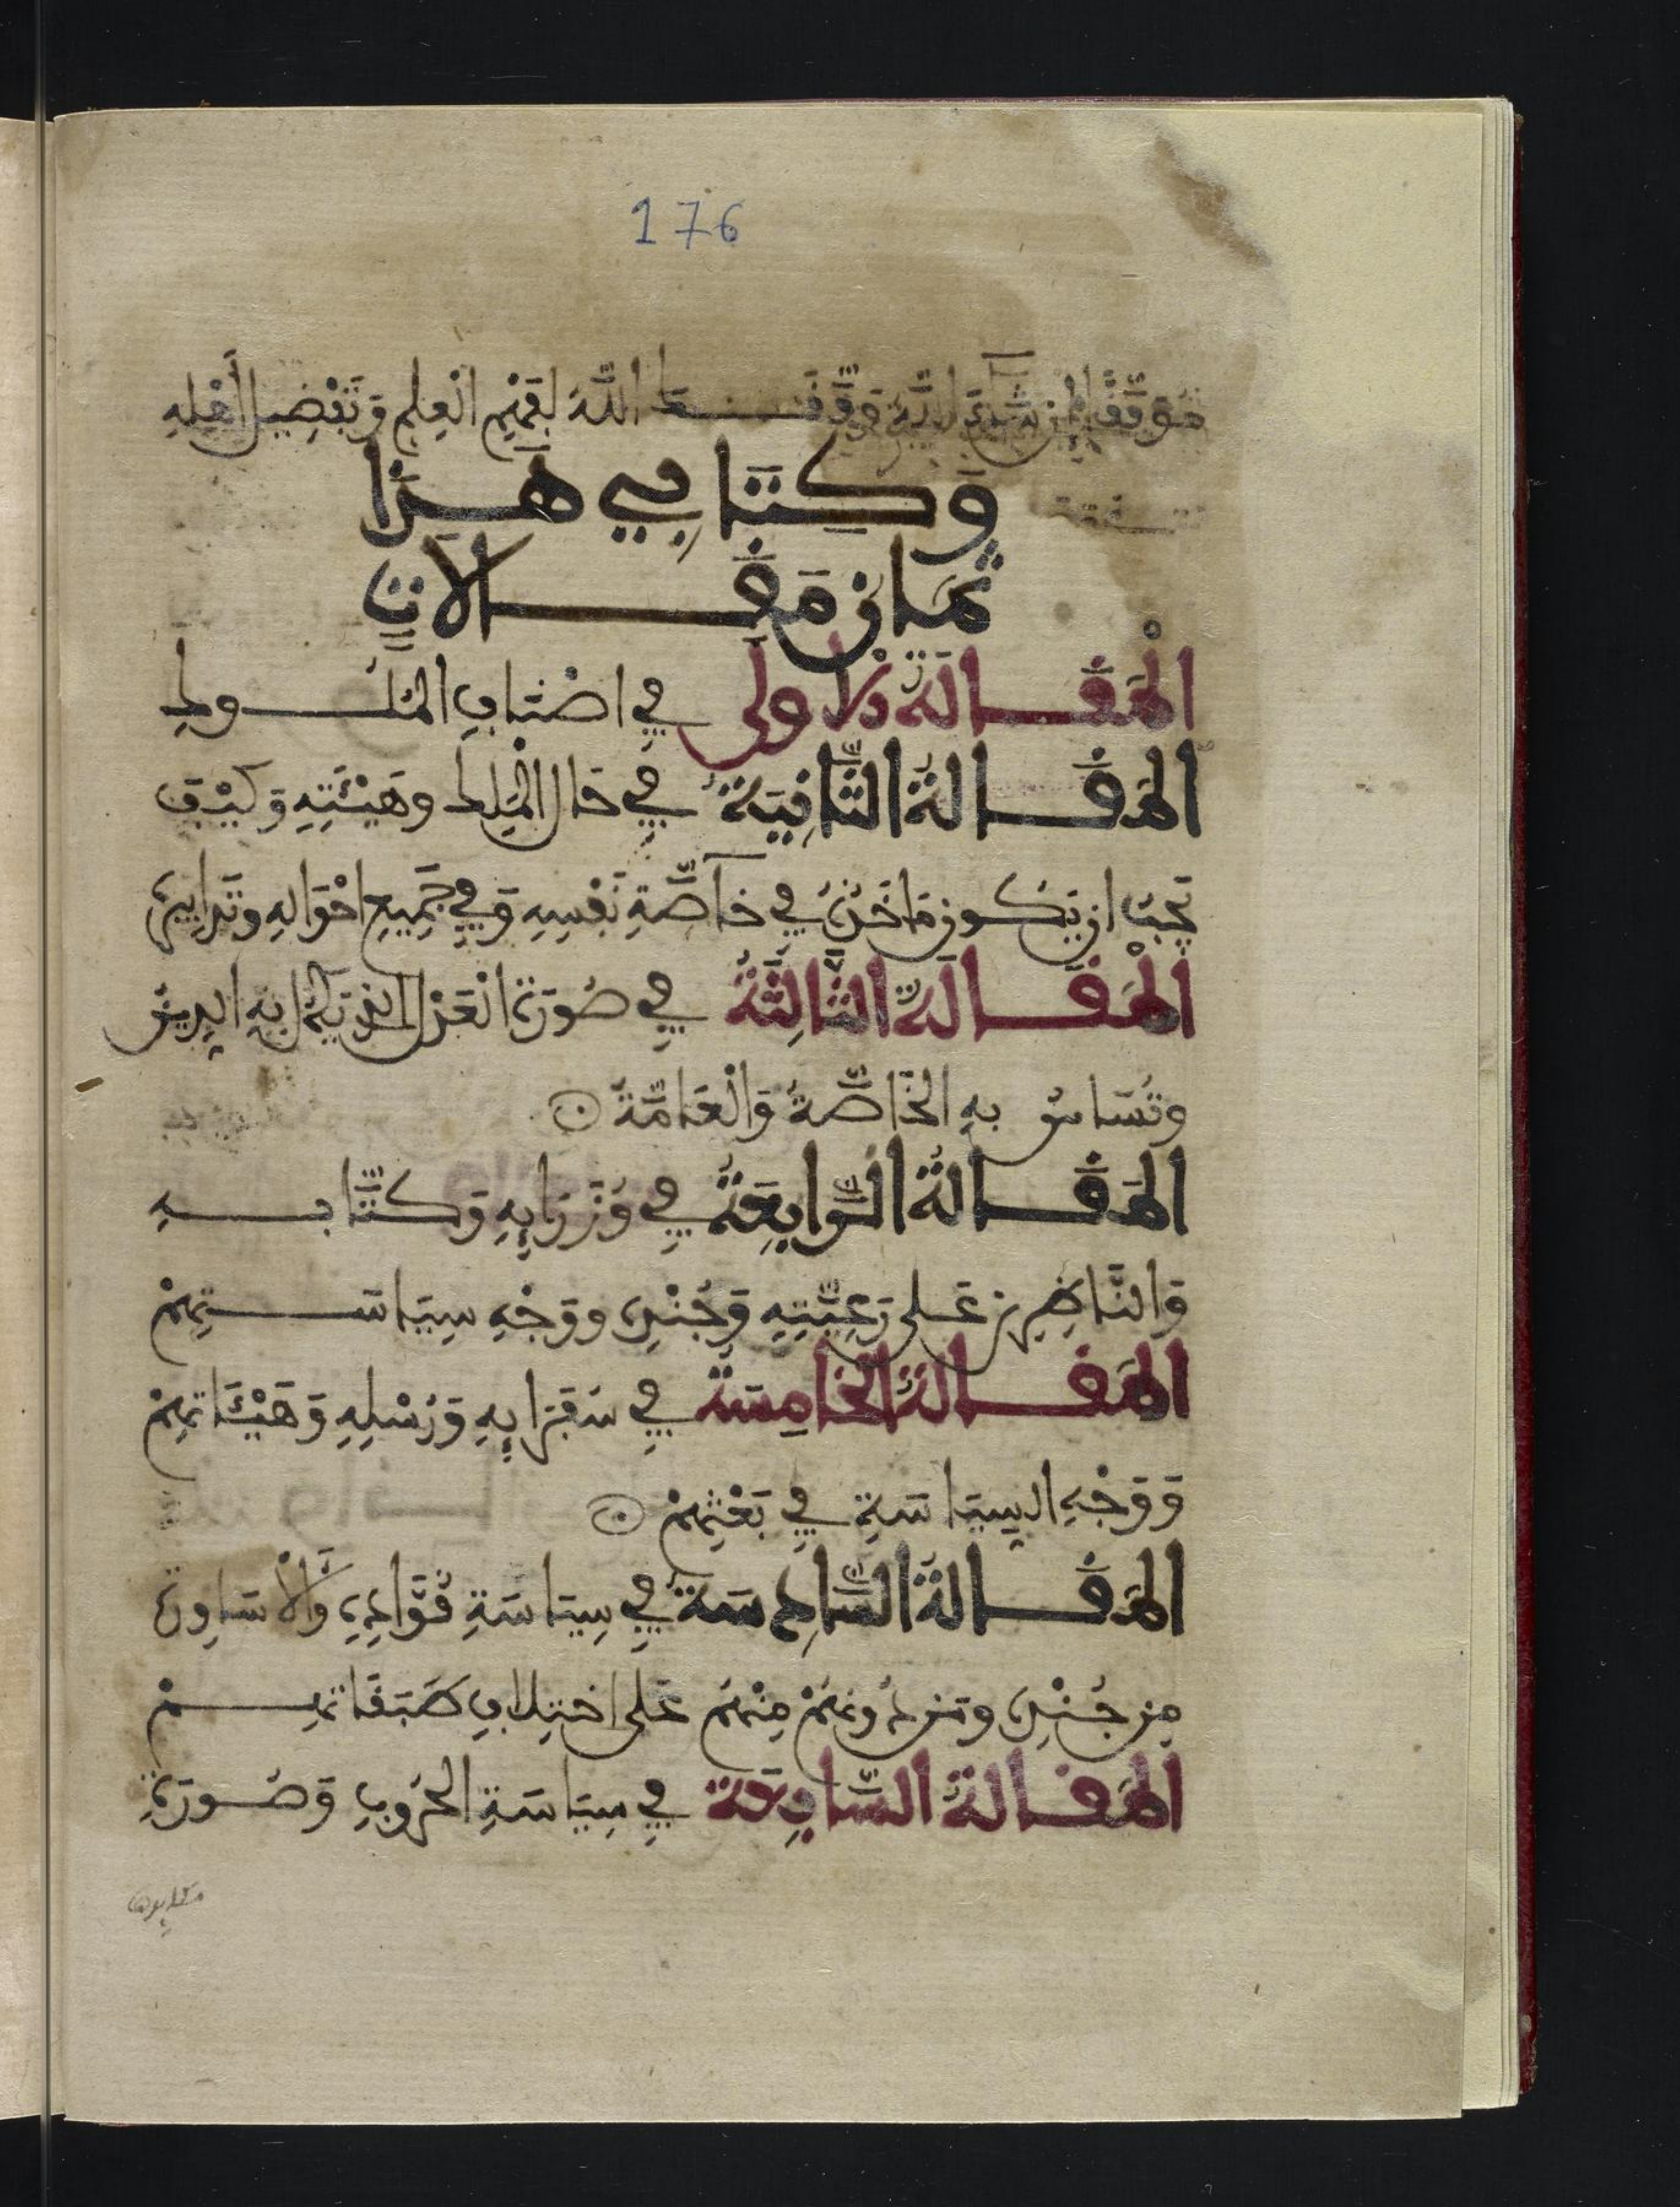 176
مُوَفَّقًا لمن شاء الله وَفَّقَنَا اللَّهُ لِفَهْمِ الْعِلْمِ وَتَفْضِيلِ أَهْلِهِ
وَكِتَابِي هَذَا
ثَمَانِ مَقَالَاتٍ
الْمَقَالَةُ الْأُولَى فِي اصْنَافِ الْمُلُوكِ
الْمَقَالَةُ الثَّانِيَةُ فِي حَالِ الْمَلِكِ وَهَيْئَتِهِ وَكَيْفَ
يَجِبُ ان يَكُونَ مَاخَذُهُ فِي خَاصَّةِ نَفْسِهِ وَفِي جَمِيعِ احْوَالِهِ وَتَدَابِيرِهِ
الْمَقَالَةُ الثَّالِثَةُ فِي صُورَةِ الْعَدْلِ الَّذِي يَكْمُلُ بِهِ الرييس
وَتُسَاسُ بِهِ الْخَاصَّةُ وَالْعَامَّةُ
الْمَقَالَةُ الرَّابِعَةُ فِي وُزَرَايِهِ وَكُتَّابِهِ
وَالنَّاظِرِينَ عَلَى رَعِيَّتِهِ وَجُنْدِهِ وَوَجْهِ سِيَاسَتِهِمْ
الْمَقَالَةُ الْخَامِسَةُ فِي سُفَرَايِهِ وَرُسْلِهِ وَهَيْئَاتِهِمْ
وَوَجْهِ السِّيَاسَةِ فِي بَعْثِهِمْ
الْمَقَالَةُ السَّادِسَةُ فِي سِيَاسَةِ قُوَّادِهِ وَالْأَسَاوِرَةِ
مِن جُنْدِهِ وَمَن دُونَهُمْ مِنْهُمْ عَلَى اخْتِلَافِ طَبَقَاتِهِمْ
الْمَقَالَةُ السَّابِعَةُ فِي سِيَاسَةِ الْحُرُوبِ وَصُورَةِ
مكايدها